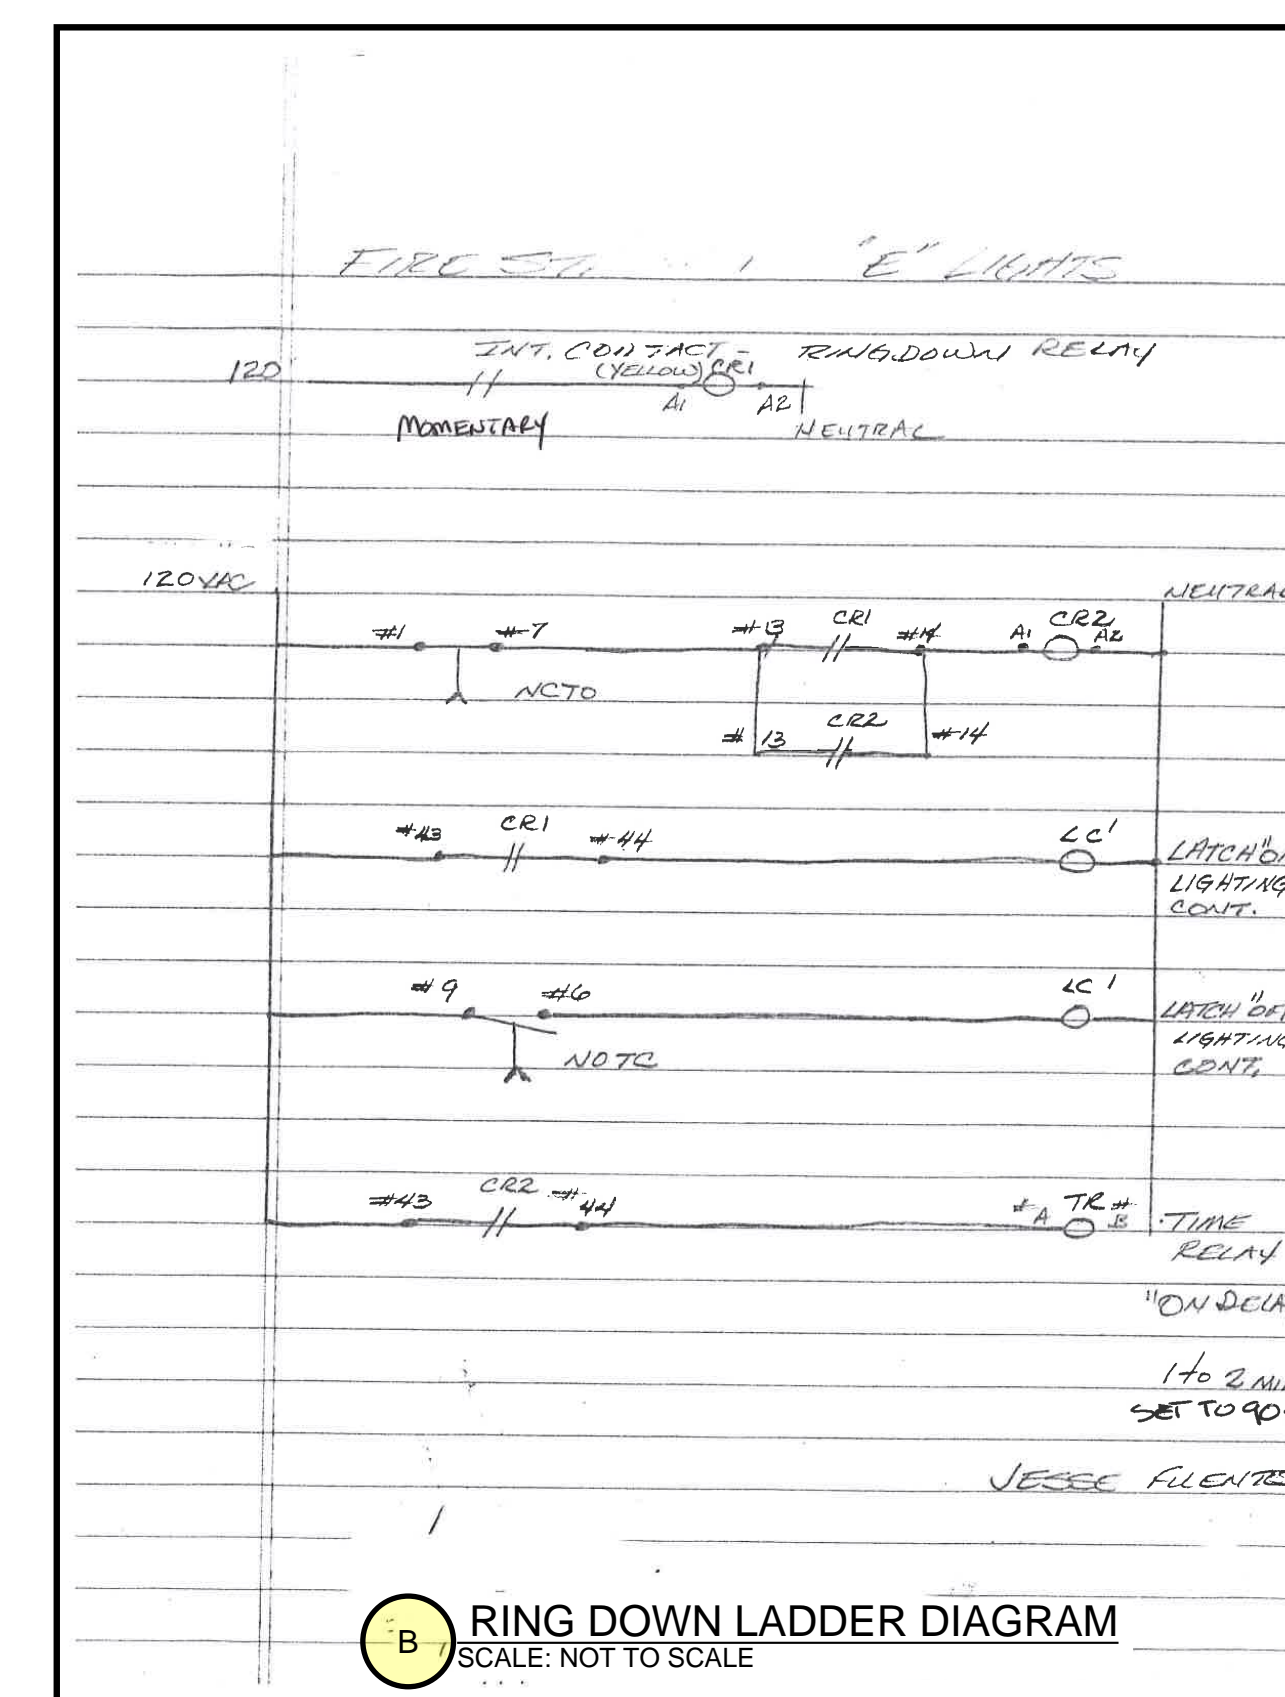 FIRE ST. "E" LIGHTS
INT. CONTACT - RINGDOWN RELAY
120 (YELLOW) CR1
A1 A2
MOMENTARY NEUTRAL
120 VAC NEUTRAL
#1 #7 #13 CR1 #14 A1 CR2 A2
NCTO
#13 CR2 #14
#43 CR1 #44 LC1 LATCH "ON
LIGHTING
CONT.
#9 #6 LC1 LATCH "OF
LIGHTING
CONT.
NOTC
#43 CR2 #44 #A TR #B TIME
RELAY
"ON DELA
1 to 2 MI
SET TO 90
JESSE FUENTES
B RING DOWN LADDER DIAGRAM
SCALE: NOT TO SCALE